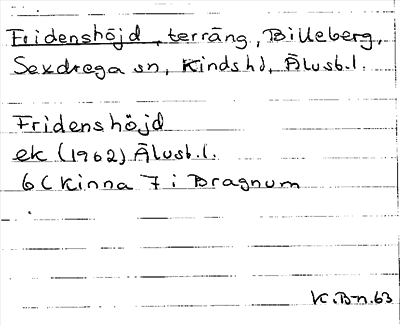 Fridenshöjd, terräng, Billeberg,
Sexdrega sn, Kinds hd, Älvsb.l.
Fridenshöjd
ek (1962) Älvsb.l.
6C Kinna 7i Bragnum
K.B-n.63